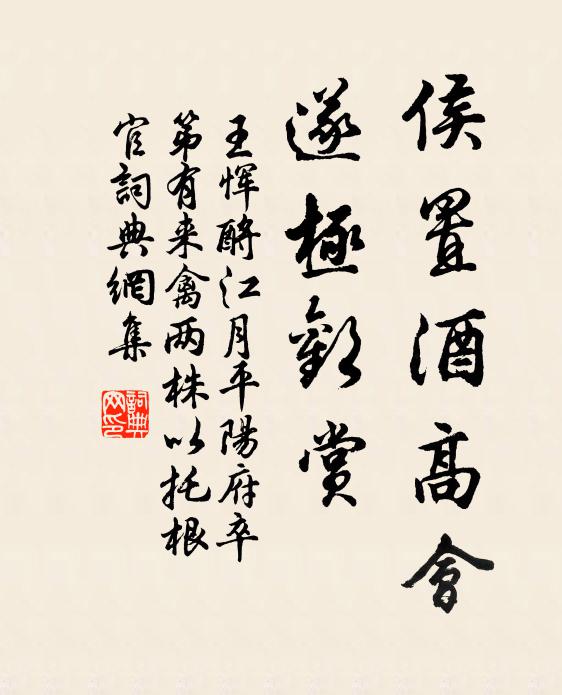 侯置酒高會
遂極歡賞
王恽酹江月平陽府卒
第有来禽两株以托根
官詞典網集
詞典网印